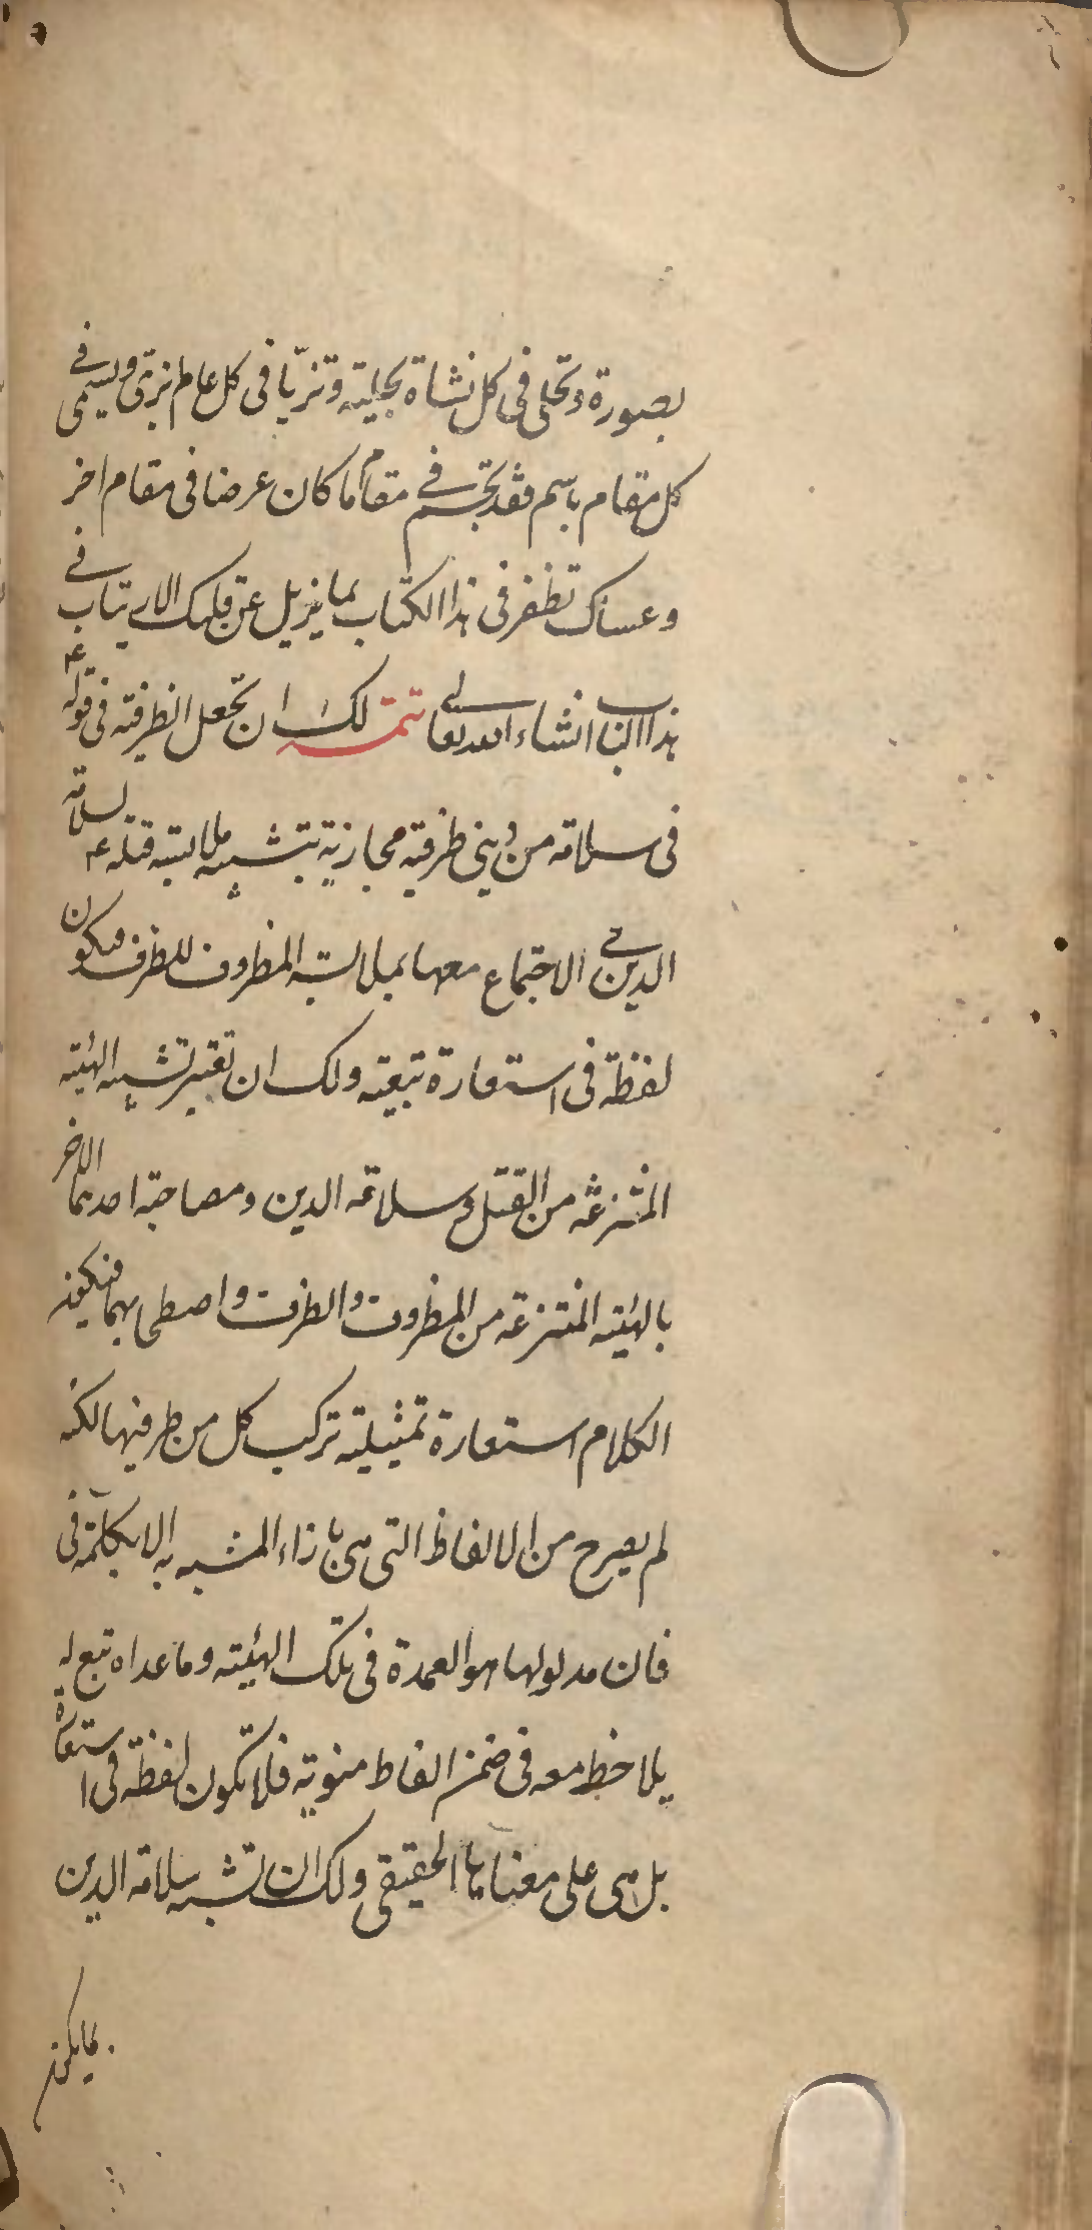 بصورة وتحلى فى كل نشاة بحلية وتزيّا فى كل عالم بزىّ ويسمى فى
كل مقام باسم فقد تجسم فى مقام ما كان عرضا فى مقام اخر
وعساك تظفر فى هذا الكتاب بما يزيل عن قلبك الارتياب فى
هذا الباب انشاء الله تعالى تتمة لك ان تجعل الظرفية فى قوله ع
فى سلامة من دينى ظرفية مجازية بتشبيه ملابسة قتله ع لسلامة
الدين فى الاجتماع معها بملابسة المظروف للظرف فيكون
لفظة فى استعارة تبعية ولك ان تعتبر تشبيه الهيئة
المنتزعة من القتل وسلامة الدين ومصاحبة احدهما الاخر
بالهيئة المنتزعة من المظروف والظرف واصطحابهما فيكون
الكلام استعارة تمثيلية تركب كل من طرفيها لكنه
لم يصرح من الالفاظ التى هى بازاء المشبه به الا بكلمة فى
فان مدلولها هو العمدة فى تلك الهيئة وما عداه تبع له
يلاحظ معه فى ضمن الفاظ منوية فلا تكون لفظة فى استعارة
بل هى على معناها الحقيقى ولك ان تشبه سلامة الدين
بما يكون